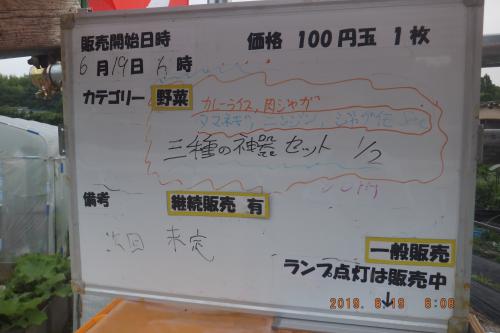 販売開始日時 価格 100円玉 1枚
6月19日 6時
カテゴリー 野菜
カレーライス, 肉ジャガ
タマネギ, ニンジン, ジャガ
三種の神器セット 1/2
備考 継続販売 有
次回 未定
一般販売
ランプ点灯は販売中
↓
2019. 6.19 6:08